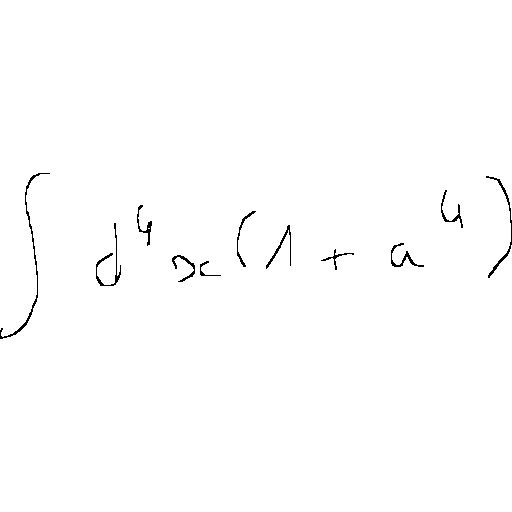 ∫ d⁴x(1 + a⁴)